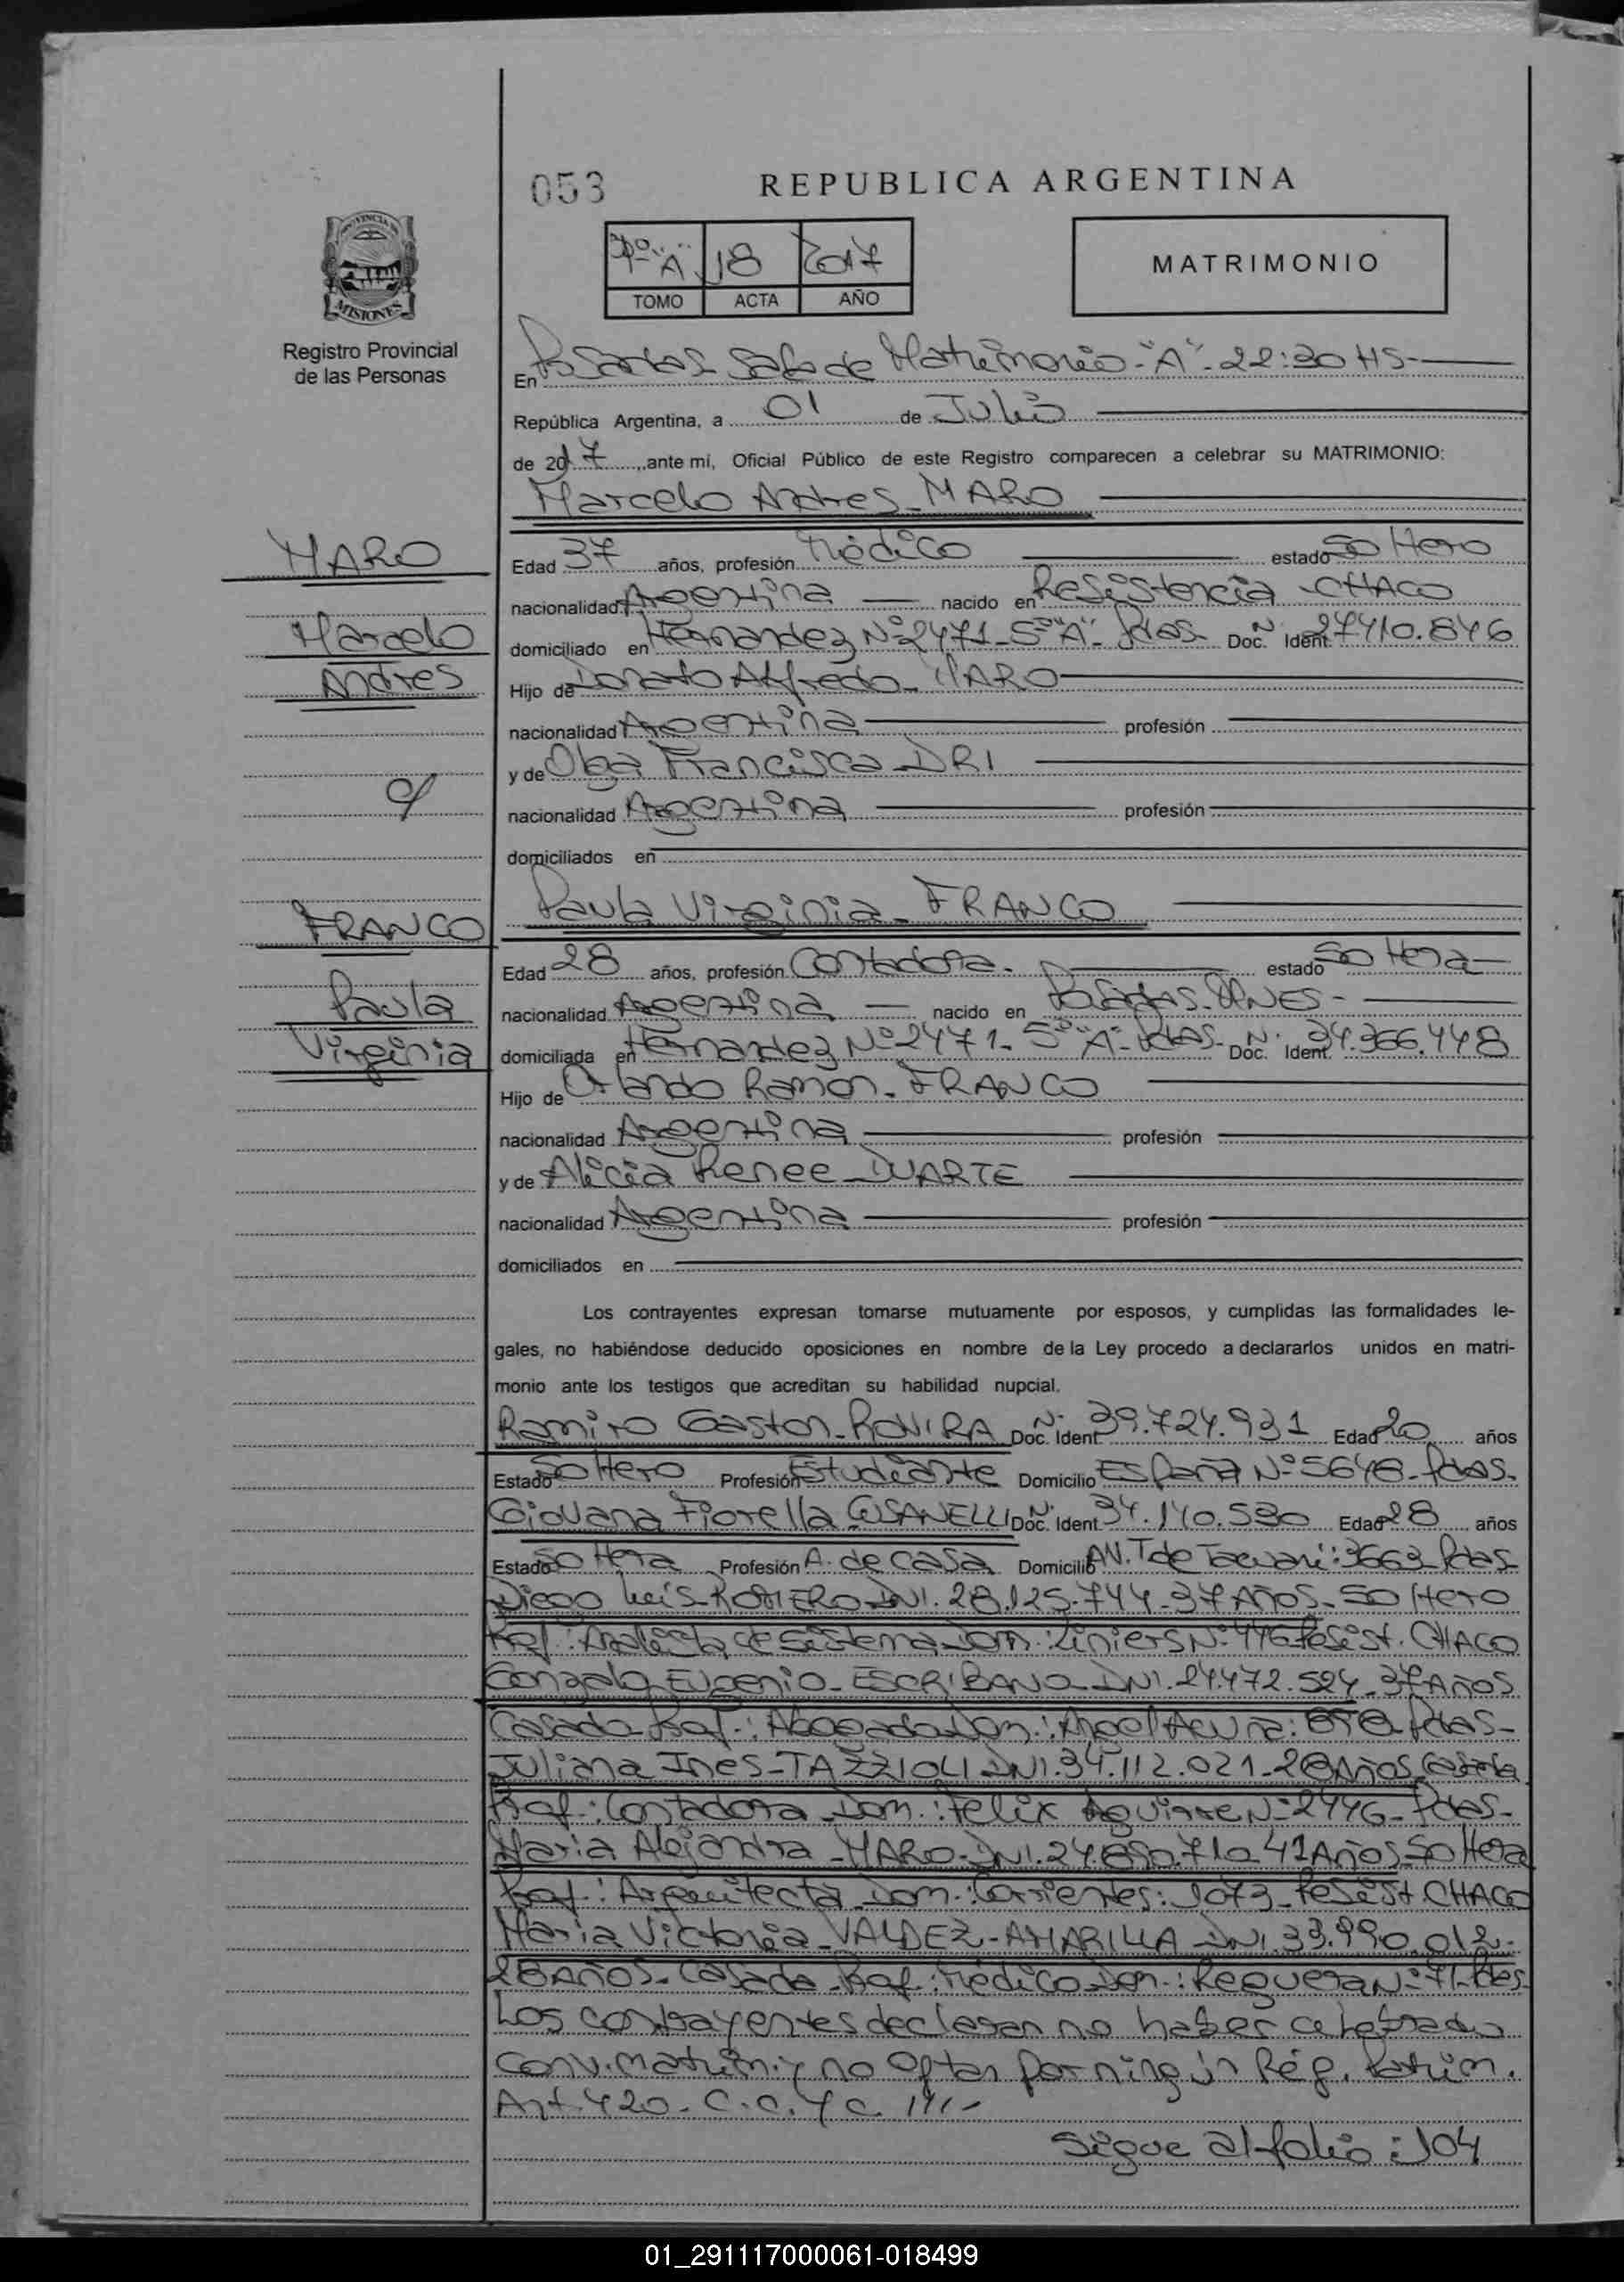 053
REPUBLICA ARGENTINA
PROVINCIA DE
MISIONES
Registro Provincial
de las Personas
"A" 18 2017
TOMO ACTA AÑO
MATRIMONIO
En Posadas Sala de Matrimonio-"A"-22:30 HS-
República Argentina, a 01 de Julio
de 2017, ante mi, Oficial Público de este Registro comparecen a celebrar su MATRIMONIO:
Marcelo Andres-MARO
MARO
Marcelo
Andres
c/
FRANCO
Paula
Virginia
Edad 37 años, profesión Médico estado Soltero
nacionalidad Argentina nacido en Resistencia-CHACO
domiciliado en Hernandez Nº2471-5º"A"-Pdas- Doc. Nº Ident. 27410.846
Hijo de Donato Alfredo-MARO
nacionalidad Argentina profesión
y de Olga Francisca-DRI
nacionalidad Argentina profesión
domiciliados en
Paula Virginia-FRANCO
Edad 28 años, profesión Contadora- estado Soltera
nacionalidad Argentina nacido en Posadas-MNES-
domiciliada en Hernandez Nº2471-5º"A"-Pdas- Doc. Nº Ident. 34.366.448
Hijo de Orlando Ramon-FRANCO
nacionalidad Argentina profesión
y de Alicia Renee-DUARTE
nacionalidad Argentina profesión
domiciliados en
Los contrayentes expresan tomarse mutuamente por esposos, y cumplidas las formalidades le-
gales, no habiéndose deducido oposiciones en nombre de la Ley procedo a declararlos unidos en matri-
monio ante los testigos que acreditan su habilidad nupcial.
Ramiro Gaston-ROVIRA Doc. Nº Ident. 39.724.931 Edad 20 años
Estado Soltero Profesión Estudiante Domicilio España Nº5648-Pdas-
Giovana Fiorella CUSANELLI Doc. Nº Ident. 34.140.530 Edad 28 años
Estado Soltera Profesión A. de casa Domicilio AV. T de Tacuari:3663-Pdas-
Diego Luis-ROMERO-DNI.28.125.744-37Años-Soltero
Prof.:Analista de Sistema-Dom.:Liniers Nº446 Resist. CHACO
Gonzalo Eugenio-ESCRIBANO-DNI.27.472.524-37Años
Casado Prof.:Abogado-Dom.:Angel Acuña: Pdas-
Juliana Ines-TAZZIOLI DNI.34.112.021-28Años Casada
Prof.:Contadora-Dom.:Felix Aguirre Nº2446-Pdas-
Maria Alejandra-MARO-DNI.24.890.710-41Años-Soltera
Prof.:Arquitecta-Dom.:Corrientes:1073-Resist CHACO
Maria Victoria-VALDEZ-AMARILLA-DNI.33.990.012-
28Años-Casada-Prof.:Médico-Dom.:Reguera Nº71-Pdas-
Los contrayentes declaran no haber celebrado
conv.matrim.y no optan por ningún Rég. Patrim.
Art.420-C.C.Y C.///-
Sigue al folio:104
01_291117000061-018499